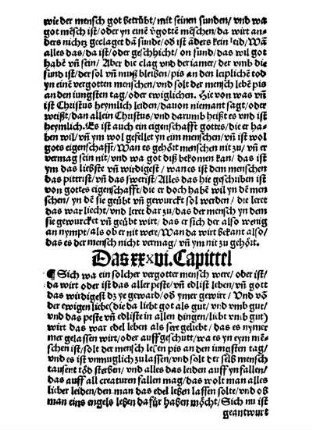 wie der mensch got betrübt/ mit seinen sunden/ vnd wa
got mēsch ist/ oder yn einē vgottē mēschen/ da wirt an=
ders nichtz geclaget dañ sünde/ vñ ist āders kein leid/ Wañ
alles das/ da ist/ oder geschicht/ on sund/ das wil got
habē vñ sein/ Aber die clag vnd der iamer/ der vmb die
sund ist/ der sol vñ muß bleiben/ pis an den leiplichē tod
yn einē vergotten menschen/ vnd solt der mensch lebē pis
an den iungsten tag/ oder ewiglichen. Hit von was vñ
ist Christus heymlich leiden/ dauon niemant sagt/ oder
weißt/ dan allein Christus/ vnd darumb heißt es vñ ist
heymlich. Es ist auch ein eigenschafft gottes/ die er ha
ben wil/ vñ ym wol gefellet yn eim menschen/ vñ ist wol
gots eigenschafft/ Wan es gehört dē menschen nit zu/ vñ er
vermag sein nit/ vnd wa got diß bekomen kan/ das ist
ym das liebste vñ wirdigest/ wan es ist dem menschen
das pitterist/ vñ das swerist/ Alles das hie geschriben ist
von gottes eigenschafft/ die er doch habē wil yn dē men
schen/ yn dē sie geübt vñ gewurckt sol werden/ die leret
das war liecht/ vnd lert dar zu/ das der mensch yn dem
sie gewurckt vñ geübt wirt. das er sich der also wenig
an nympt/ als ob er nit wer/ Wan da wirt bekant also/
das es der mensch nicht vermag/ vñ ym nit zu gehört.
Das xxxvi. Capittel
¶ Sich wa ein solcher vergotter mensch were/ oder ist/
da wirt oder ist das aller peste/ vñ edlist leben/ vñ got
das wirdigest dz ye geward/ oð ymer gewirt/ Vnd vō
der ewigen liebe/ die da liebt got als gut/ vnd vmb gut/
vnd das peste vñ edliste in allen dingen/ liebt vmb gut/
wirt das war edel leben als sere geliebt/ das es nymer
mer gelassen wirt/ oder auff geschutt/ wa es yn eym mē=
schen ist/ solt der mensch lebē pis an den iungsten tag/
vnd es ist vnmuglich zu lassen/ vnd solt der selb mensch
tausent tod sterben/ vnd alles das leiden auff yn fallen/
das auff all creaturen fallen mag/ das wolt man alles
lieber leiden/ den man das edel lebē lassen solte/ vnd ob
man eins engels lebē dafür habē möcht/ Sich nu ist
geantwurt